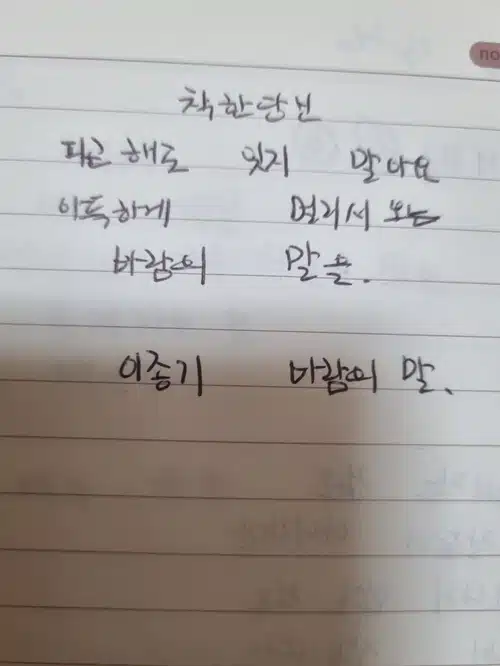 착한당신
피곤 해도 잊지 말아요
아득하게 멀리서 오는
바람의 말을.
이종기 바람의 말.